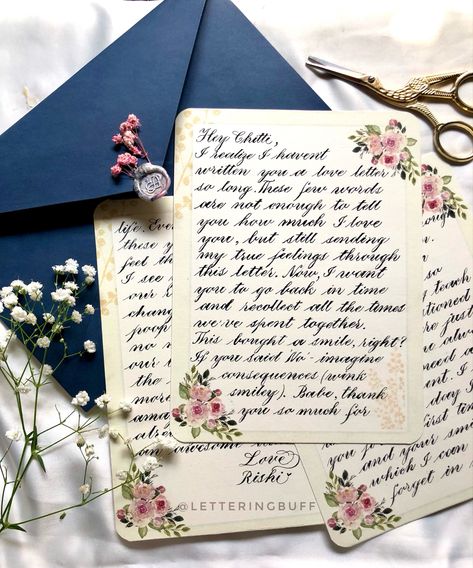 Hey Chitti,
I realize I havent
written you a love letter
so long. These few words
are not enough to tell
you how much I love
you, but still sending
my true feelings through
this letter. Now, I want
you to go back in time
and recollect all the times
we've spent together.
This bought a smile, right?
If you Said 'No'- imagine
consequences (wink
smiley). Babe, thank
you so much for
life. Eve
these y
feel th
I see
our b
chang
no m
our
the
more
ama
alre
an awesome
Love
Rishi
so
teach
need
day
and your smi
which I can
forget in
@LETTERINGBUFF